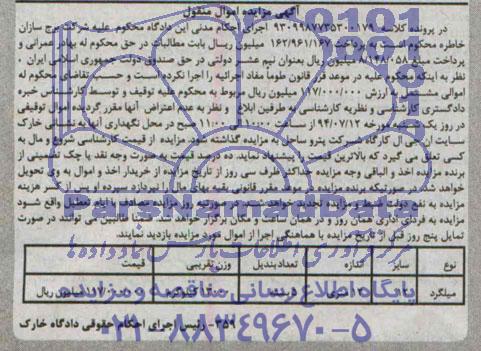 آگهی مزایده اموال منقول
در پرونده کلاسه ۹۳۰۹۹۸۷۷۳۵۳۰۰۱۷۹ اجرای احکام مدنی این دادگاه محکوم علیه شرکت برج سازان
خاطره محکوم است به پرداخت ۱۶۲/۹۶۱/۱۶۷ میلیون ریال بابت مطالبات در حق محکوم له بهادر عمرانی و
پرداخت مبلغ ۸/۱۴۸/۰۵۸ میلیون ریال بعنوان نیم عشر دولتی در حق صندوق دولت جمهوری اسلامی ایران ،
نظر به اینکه محکوم علیه در موعد مقرر قانون طوعا مفاد اجرائیه را اجرا نکرده است و حسب تقاضای محکوم له
اموالی مشتمل به ارزش ۱۱۷/۰۰۰/۰۰۰ میلیون ریال مربوط به محکوم علیه توقیف و توسط کارشناس خبره
دادگستری کارشناسی و نظریه کارشناسی به طرفین ابلاغ و نظر به عدم اعتراض آنها مقرر گردیده اموال توقیفی
در روز یک شنبه مورخه ۹۴/۰۷/۱۲ از ساعت ۱۰:۰۰ الی ۱۱:۰۰ صبح در محل نگهداری آنها به نشانی خارک
سایت ان جی ال کارگاه شرکت پترو ساحل به مزایده گذاشته شود. مزایده از قیمت کارشناسی شروع و مال به
کسی تعلق می گیرد که بالاترین قیمت را پیشنهاد نماید. ده درصد قیمت به صورت وجه نقد یا چک تضمینی از
برنده مزایده اخذ و الباقی وجه مزایده حداکثر ظرف سی روز از تاریخ مزایده از خریدار اخذ و اموال به وی تحویل
خواهد شد. در صورتیکه برنده مزایده در موعد مقرر قانونی بقیه بهای مال را نپردازد سپرده او پس از کسر هزینه
مزایده به نفع دولت ضبط و مزایده تجدید خواهد شد. در صورتیه روز مزایده مصادف با ایام تعطیل واقع شود
مزایده به فردای اداری همان روز و در همان ساعت و مکان برگزار خواهد شد. ضمنا طالبین می توانند در صورت
تمایل پنج روز قبل از تاریخ مزایده با هماهنگی اجرا از اموال مورد مزایده بازدید نمایند.
نوع سایز اندازه تعدادبندیل وزن تقریبی قیمت
میلگرد متری میلیون ریال
۳۵۹- رئیس اجرای احکام حقوقی دادگاه خارک
ParsNamadData
پایگاه اطلاع رسانی مناقصه و مزایده
۰۲۱-۸۸۳۴۹۶۷۰-۵